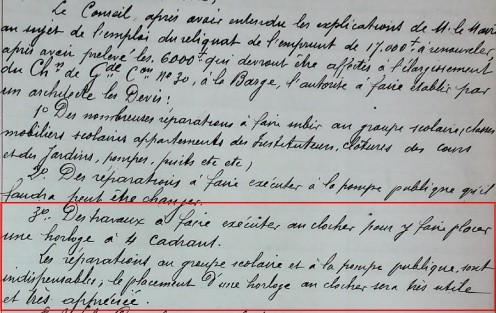 Le Conseil, après avoir entendu les explications de M. le Maire
au sujet de l'emploi du reliquat de l'emprunt de 17.000f à renouveler,
après avoir prélevé les 6000f qui devront être affectés à l'élargissement
du Chin de Gde Con No 30, à la Barge, l'autorise à faire établir par
un architecte les Devis:
1o Des nombreuses réparations à faire subir au groupe scolaire, classes
mobiliers scolaires appartements des Instituteurs, clôtures des cours
et des Jardins, pompes, puits etc etc,
2o Des réparations à faire exécuter à la pompe publique qu'il
faudra peut être changer.
3o Des travaux à faire exécuter au clocher pour y faire placer
une horloge à 4 cadrant.
Les réparations au groupe scolaire et à la pompe publique, sont
indispensables, le placement d'une horloge au clocher sera très utile
et très appréciée.